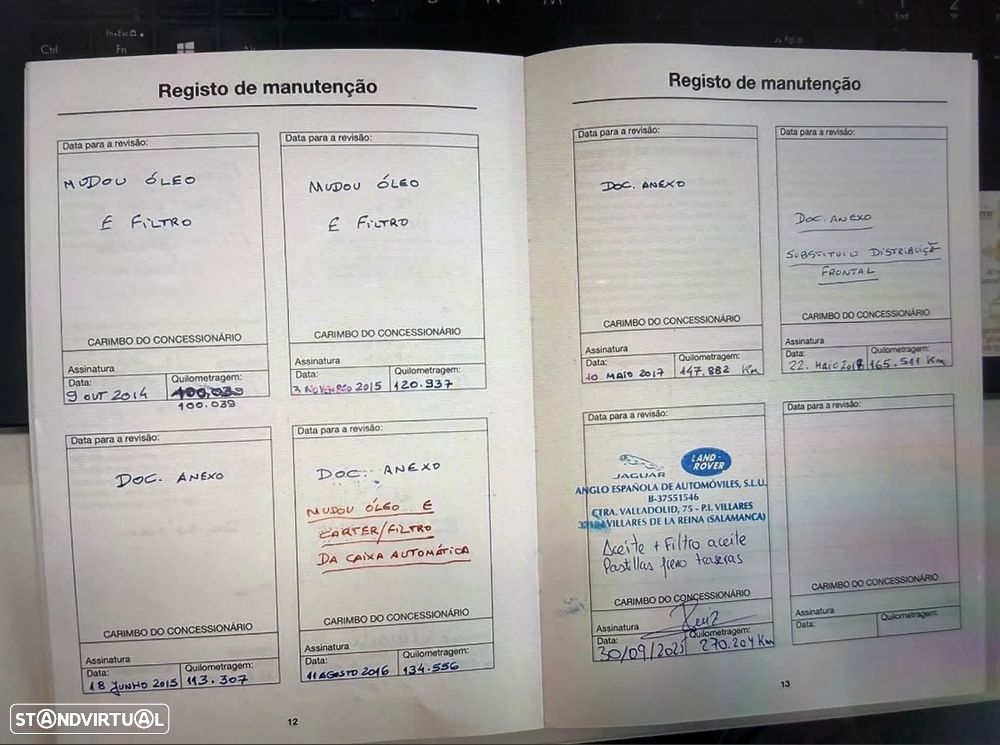 Ctrl
Fn
PgUp
End
Registo de manutenção
Data para a revisão:
MUDOU ÓLEO
E FILTRO
CARIMBO DO CONCESSIONÁRIO
Assinatura
Data:
Quilometragem:
9 OUT 2014
100.039
100.039
Data para a revisão:
MUDOU ÓLEO
E FILTRO
CARIMBO DO CONCESSIONÁRIO
Assinatura
Data:
Quilometragem:
2015
120.937
Data para a revisão:
DOC. ANEXO
CARIMBO DO CONCESSIONÁRIO
Assinatura
Data:
Quilometragem:
18 JUNHO 2015
113.307
Data para a revisão:
DOC. ANEXO
MUDOU ÓLEO E
CARTER/FILTRO
DA CAIXA AUTOMÁTICA
CARIMBO DO CONCESSIONÁRIO
Assinatura
Data:
Quilometragem:
11 AGOSTO 2016
134.556
12
Registo de manutenção
Data para a revisão:
DOC. ANEXO
CARIMBO DO CONCESSIONÁRIO
Assinatura
Data:
Quilometragem:
10 MAIO 2017
147.882 Km
Data para a revisão:
DOC. ANEXO
SUBSTITUIU DISTRIBUIÇÃO
FRONTAL
CARIMBO DO CONCESSIONÁRIO
Assinatura
Data:
Quilometragem:
22. MAIO 2018
165.511 Km
Data para a revisão:
JAGUAR
LAND-
ROVER
ANGLO ESPAÑOLA DE AUTOMÓVILES, S.L.U.
B-37551546
CTRA. VALLADOLID, 75 - P.I. VILLARES
VILLARES DE LA REINA (SALAMANCA)
Aceite + Filtro aceite
Pastillas freno traseras
CARIMBO DO CONCESSIONÁRIO
Assinatura
Data:
Quilometragem:
30/09/2021
270.204 Km
Data para a revisão:
CARIMBO DO CONCESSIONÁRIO
Assinatura
Data:
Quilometragem:
13
STANDVIRTUAL